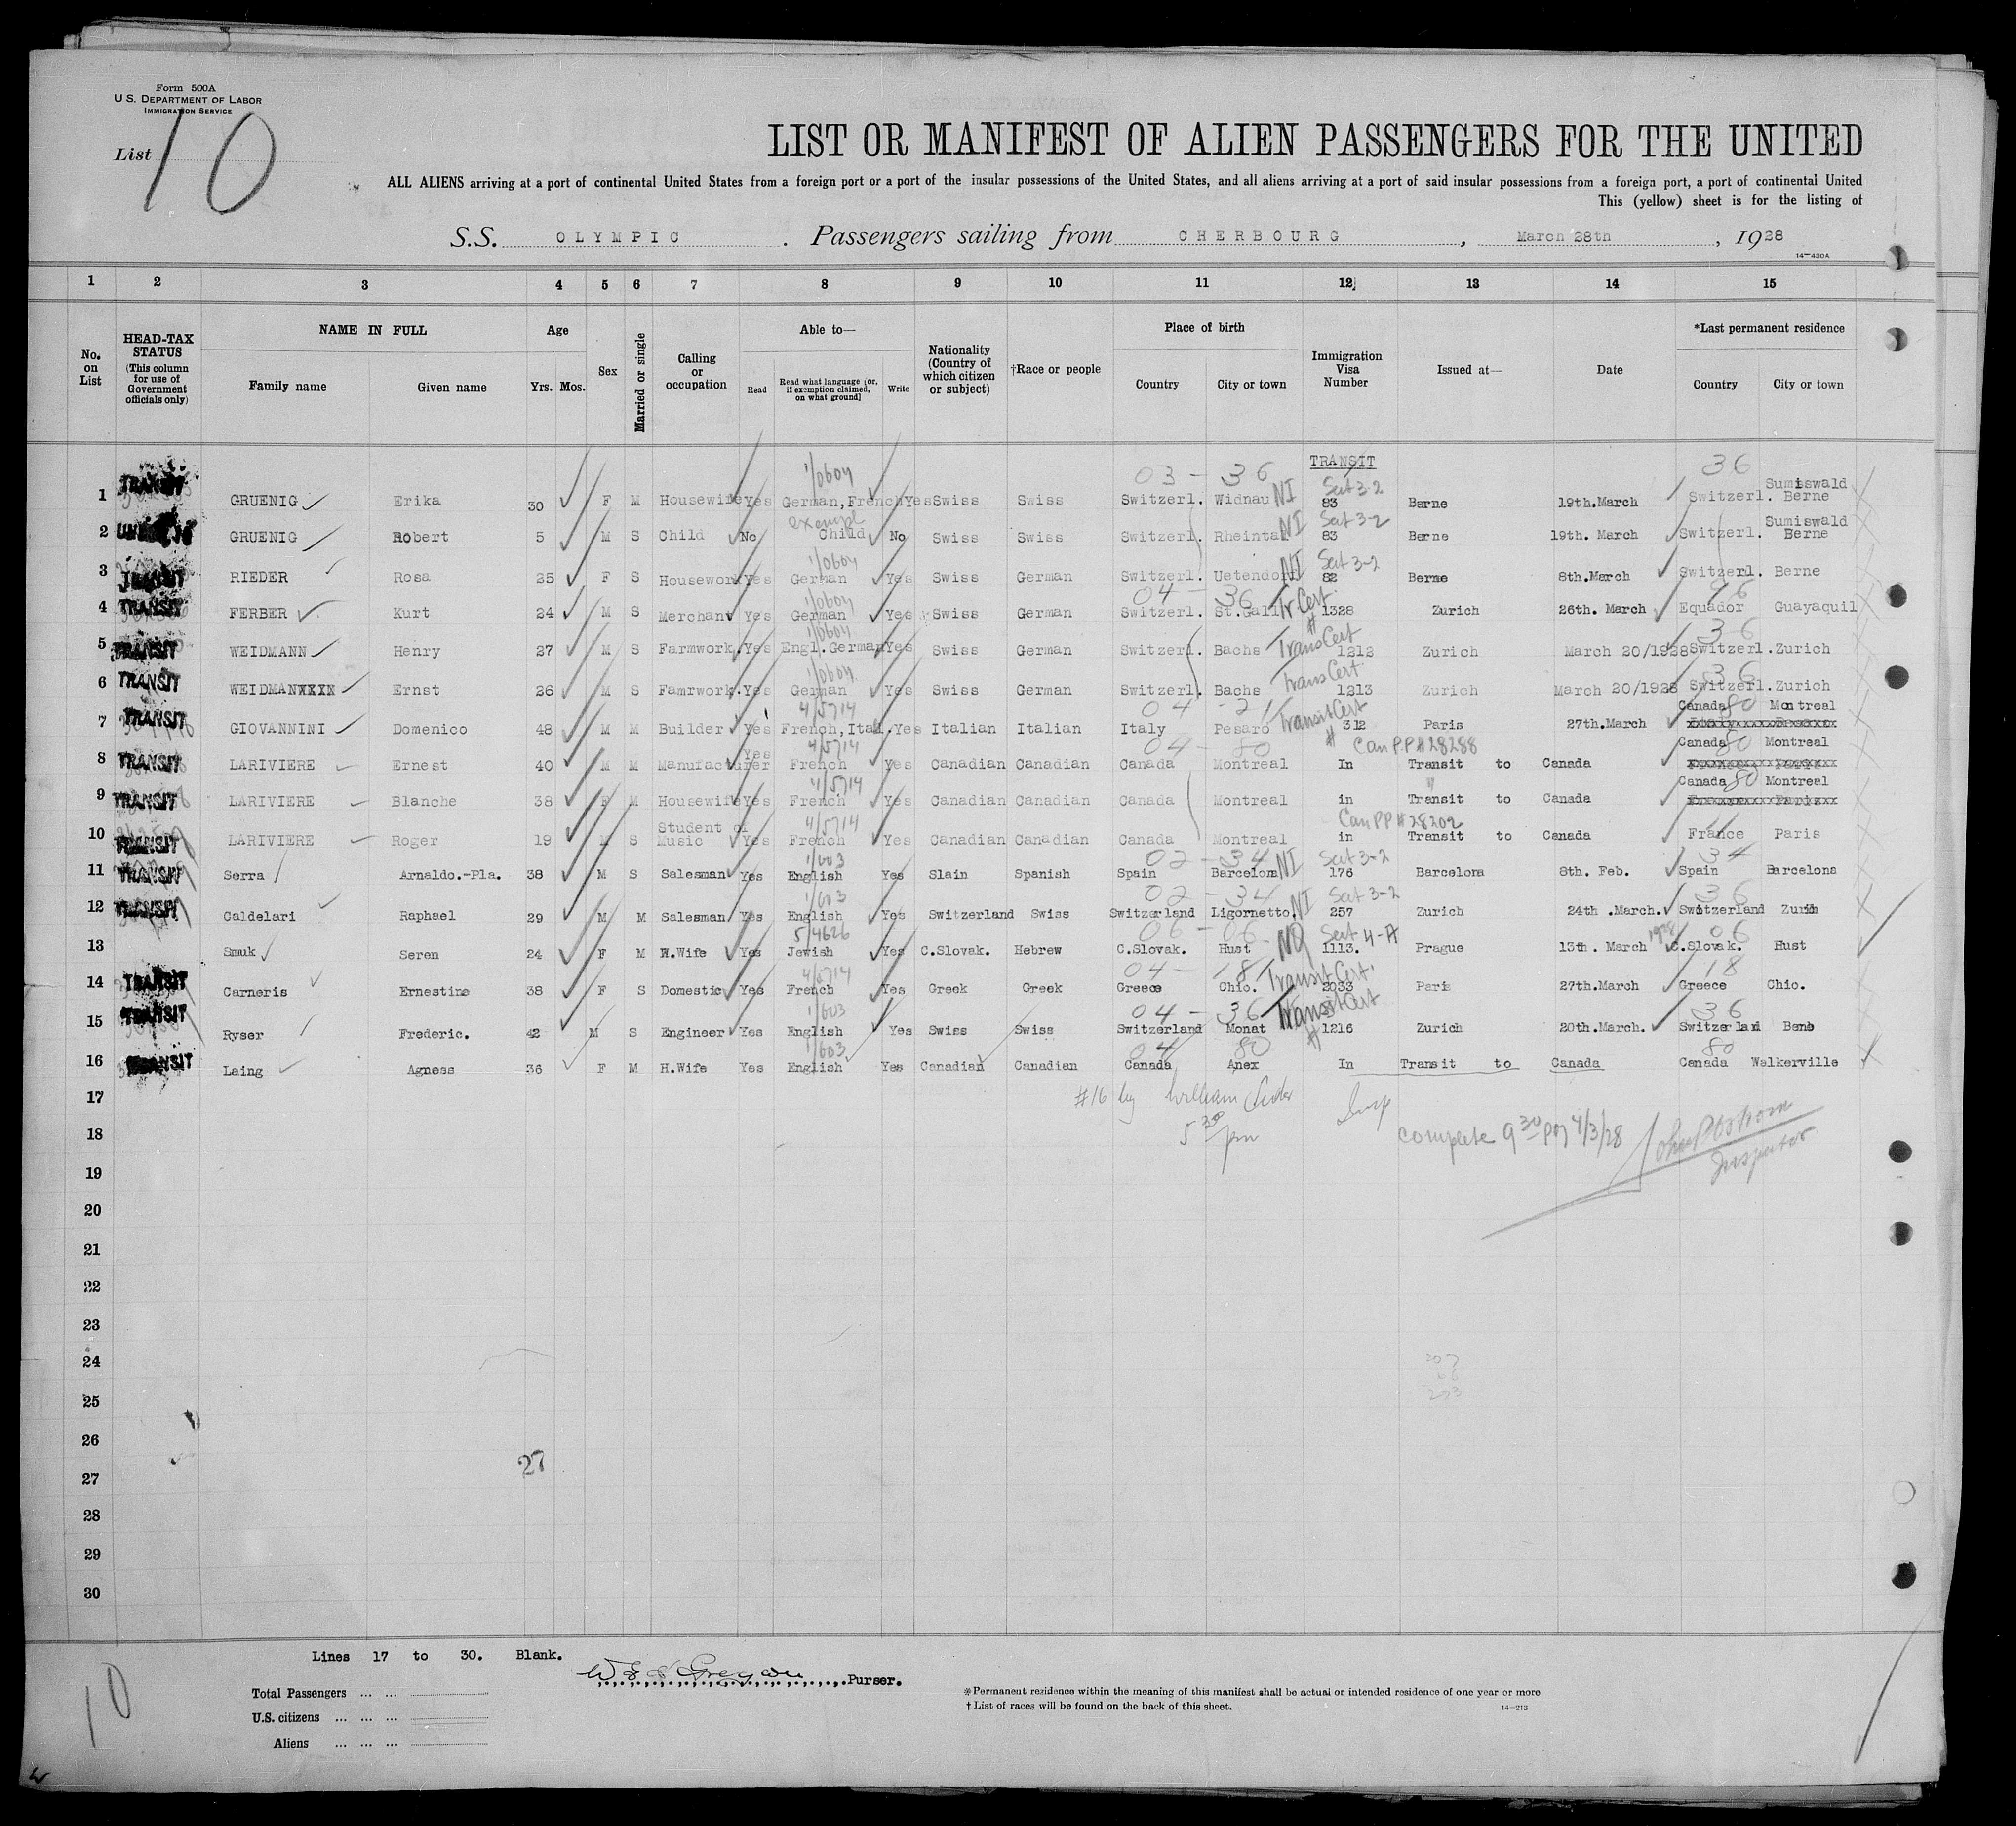 Form 500A
U. S. DEPARTMENT OF LABOR
IMMIGRATION SERVICE
List 10
LIST OR MANIFEST OF ALIEN PASSENGERS FOR THE UNITED
ALL ALIENS arriving at a port of continental United States from a foreign port or a port of the insular possessions of the United States, and all aliens arriving at a port of said insular possessions from a foreign port, a port of continental United
This (yellow) sheet is for the listing of
S.S. OLYMPIC . Passengers sailing from CHERBOURG , March 28th , 1928
14—430A
1 2 3 4 5 6 7 8 9 10 11 12 13 14 15
No. on List
HEAD-TAX STATUS (This column for use of Government officials only)
NAME IN FULL
Family name Given name
Age
Yrs. Mos.
Sex
Married or single
Calling or occupation
Able to—
Read
Read what language [or, if exemption claimed, on what ground]
Write
Nationality (Country of which citizen or subject)
†Race or people
Place of birth
Country City or town
Immigration Visa Number
Issued at—
Date
*Last permanent residence
Country City or town
TRANSIT
1/0604 03 - 36 Sect 3-2 36 Sumiswald
1 TRANSIT GRUENIG Erika 30 F M Housewife Yes German,French Yes Swiss Swiss Switzerl. Widnau NI 83 Berne 19th.March Switzerl. Berne
exempt Sect 3-2 Sumiswald
2 GRUENIG Robert 5 M S Child No Child No Swiss Swiss Switzerl. Rheintal NI 83 Berne 19th. March Switzerl. Berne
1/0604 Sect 3-2
3 TRANSIT RIEDER Rosa 25 F S Housework Yes German Yes Swiss German Switzerl. Uetendorf NI 82 Berne 8th.March Switzerl. Berne
1/0604 04 - 36 Tr Cert. 96
4 TRANSIT FERBER Kurt 24 M S Merchant Yes German Yes Swiss German Switzerl. St.Gall 1328 Zurich 26th. March Equador Guayaquil
1/0604 # Trans Cert 36
5 TRANSIT WEIDMANN Henry 27 M S Farmwork. Yes Engl.German Yes Swiss German Switzerl. Bachs 1212 Zurich March 20/1928 Switzerl. Zurich
1/0604 Trans Cert 36
6 TRANSIT WEIDMANXXXN Ernst 26 M S Famrwork. Yes German Yes Swiss German Switzerl. Bachs 1213 Zurich March 20/1928 Switzerl. Zurich
4/5714 04 - 21 Transit Cert Canada 80 Montreal
7 TRANSIT GIOVANNINI Domenico 48 M M Builder Yes French,Ital. Yes Italian Italian Italy Pesaro 312 Paris 27th.March
Yes 4/5714 04 - 80 # Can P.P # 28288 Canada 80 Montreal
8 TRANSIT LARIVIERE Ernest 40 M M Manufacturer French Yes Canadian Canadian Canada Montreal In Transit to Canada
4/5714 " Canada 80 Montreal
9 TRANSIT LARIVIERE Blanche 38 F M Housewife Yes French Yes Canadian Canadian Canada Montreal in Transit to Canada
Student of 4/5714 Can PP # 28202
10 TRANSIT LARIVIERE Roger 19 M S Music Yes French Yes Canadian Canadian Canada Montreal in Transit to Canada France Paris
1/603 02 - 34 Sect 3-2 34
11 TRANSIT Serra Arnaldo.-Pla. 38 M S Salesman Yes English Yes Slain Spanish Spain Barcelona NI 176 Barcelona 8th. Feb. Spain Barcelona
1/603 02 - 34 Sect 3-2 36
12 TRANSIT Caldelari Raphael 29 M M Salesman Yes English Yes Switzerland Swiss Switzerland Ligornetto. NI 257 Zurich 24th .March. Switzerland Zurich
5/4626 06 - 06 Sect 4-A 1928 06
13 Smuk Seren 24 F M H.Wife Yes Jewish Yes C.Slovak. Hebrew C.Slovak. Hust NQ 1113. Prague 13th. March C.Slovak. Hust
4/5714 04 - 18 Transit Cert. 18
14 TRANSIT Carneris Ernestine 38 F S Domestic Yes French Yes Greek Greek Greece Chio. 2033 Paris 27th.March Greece Chio.
1/603 04 - 36 Transit Cert 36
15 TRANSIT Ryser Frederic. 42 M S Engineer Yes English Yes Swiss Swiss Switzerland Monat 1216 Zurich 20th.March. Switzerland
1/603 04 80 # 80
16 TRANSIT Laing Agness 36 F M H.Wife Yes English Yes Canadian Canadian Canada Anex In Transit to Canada Canada Walkerville
17 #16 by William Insp
18 5 30 pm complete 9 30 pm 4/3/28 Inspector
19
20
21
22
23
24
25
26
27 27
28
29
30
Lines 17 to 30. Blank.
Purser.
10
Total Passengers ... ...
U.S. citizens ... ... ...
Aliens ... ... ...
*Permanent residence within the meaning of this manifest shall be actual or intended residence of one year or more
† List of races will be found on the back of this sheet.
14—213